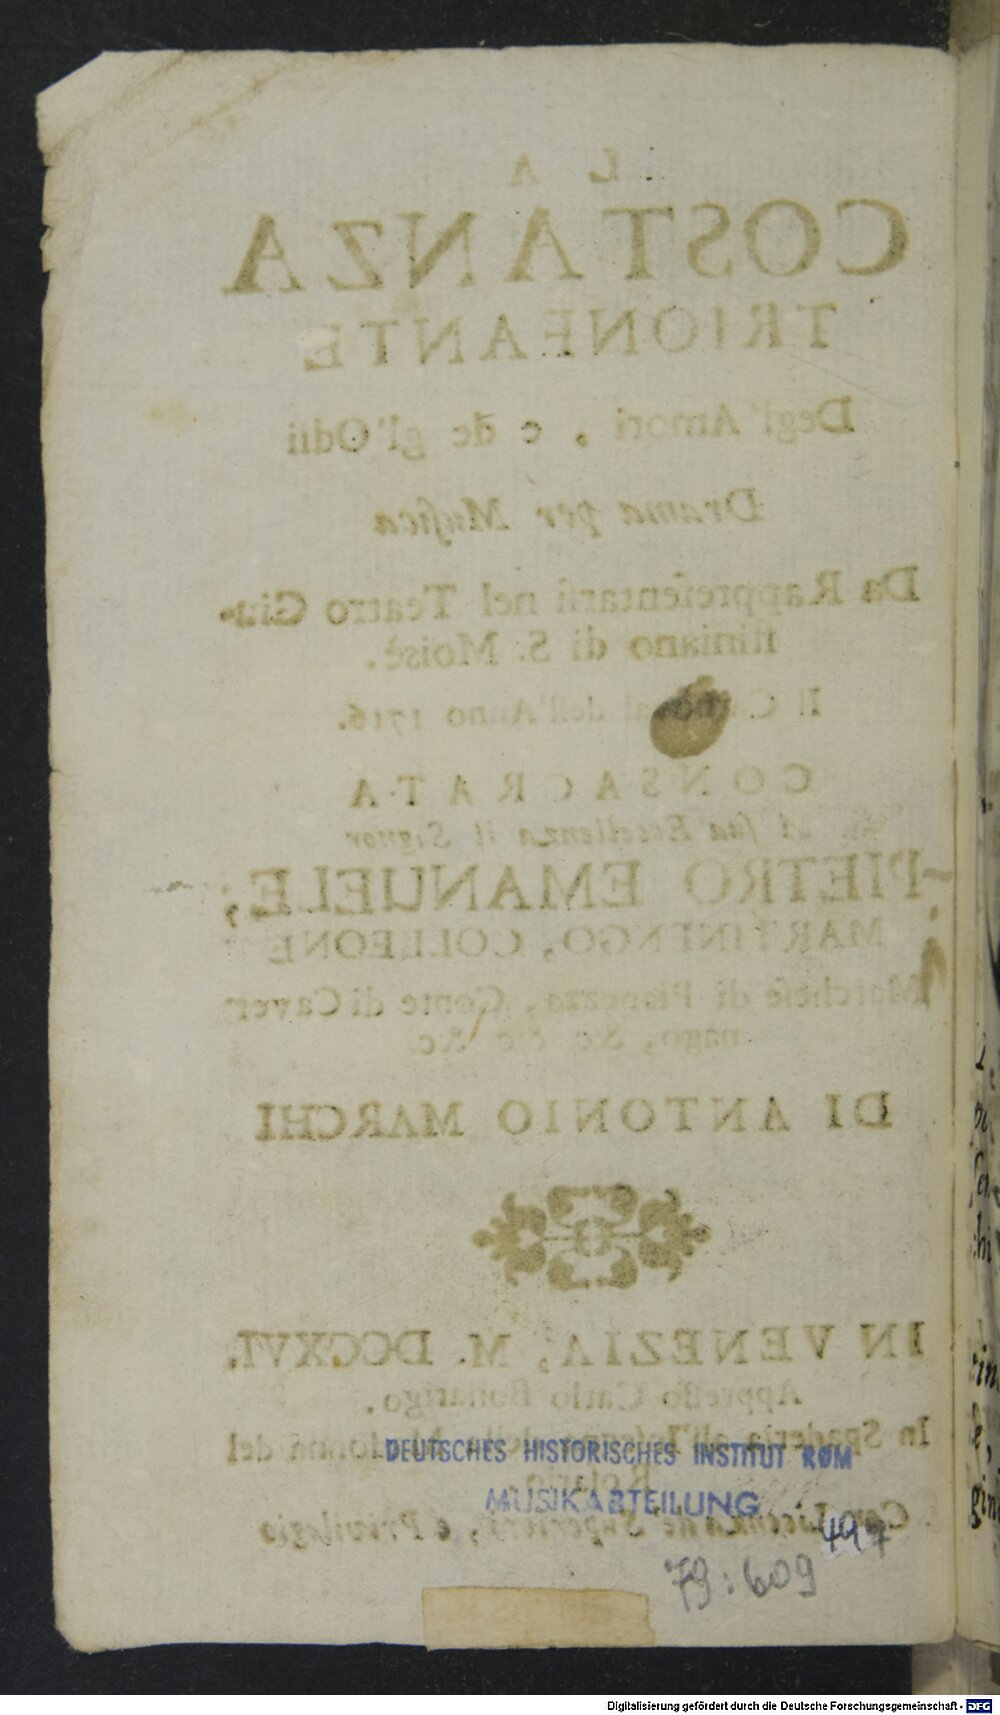 L A
COSTANZA
TRIONFANTE
Degl'Amori, e de gl'Odii
Drama per Musica
Da Rappresentarsi nel Teatro Giu-
stiniano di S. Moisè.
Il dell'Anno 1716.
CONSACRATA
A sua Eccellenza il Signor
PIETRO EMANUELE,
MARTINENGO, COLLEONE
Marchese di Pianezza, Conte di Caver
nago, &c &c &c.
DI ANTONIO MARCHI
IN VENEZIA, M. DCCXVI.
Appresso Carlo Bonarigo.
In Spaderia del
DEUTSCHES HISTORISCHES INSTITUT ROM
MUSIKABTEILUNG
Con Licenza de Superiori, e Privilegio
497
79:609
Digitalisierung gefördert durch die Deutsche Forschungsgemeinschaft - DFG